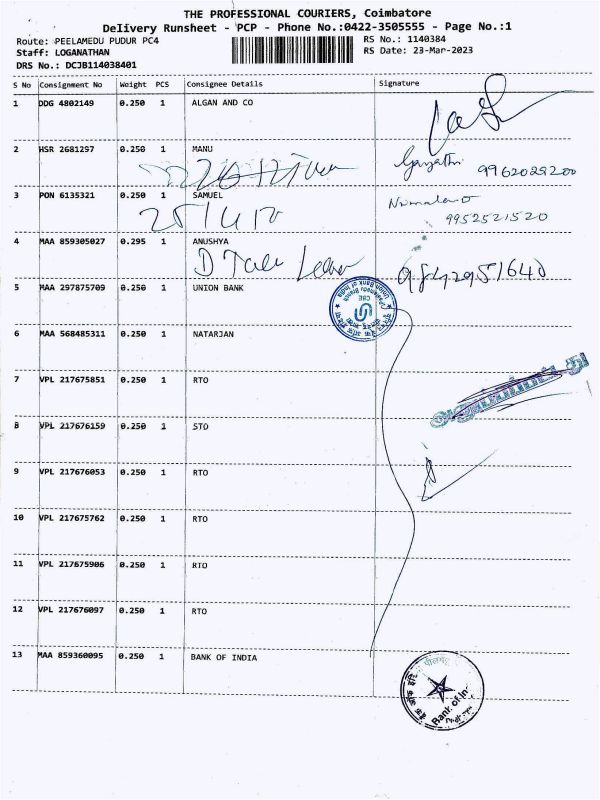 THE PROFESSIONAL COURIERS, Coimbatore
Delivery Runsheet - PCP - Phone No.:0422-3505555 - Page No.:1
Route: PEELAMEDU PUDUR PC4
RS No.: 1140384
Staff: LOGANATHAN
RS Date: 23-Mar-2023
DRS No.: DCJB114038401
S No Consignment No Weight PCS Consignee Details Signature
1 DDG 4802149 0.250 1 ALGAN AND CO
2 HSR 2681297 0.250 1 MANU
Gayathri 9962029200
3 PON 6135321 0.250 1 SAMUEL
9952521520
4 MAA 859305027 0.295 1 ANUSHYA
9842951640
5 MAA 297875709 0.250 1 UNION BANK
Union Bank of India
CBE
6 MAA 568485311 0.250 1 NATARJAN
7 VPL 217675851 0.250 1 RTO
8 VPL 217676159 0.250 1 STO
9 VPL 217676053 0.250 1 RTO
10 VPL 217675762 0.250 1 RTO
11 VPL 217675906 0.250 1 RTO
12 VPL 217676097 0.250 1 RTO
13 MAA 859360095 0.250 1 BANK OF INDIA
Bank of